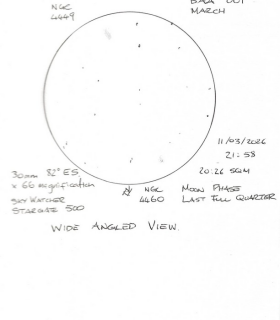 NGC
4449
BACK OUT
MARCH
11/03/2026
21:58
20.26 SQM
30mm 82° ES
x 66 magnification
SKY WATCHER
STARGATE 500
NGC
4460
MOON PHASE
LAST FULL QUARTER
WIDE ANGLED VIEW